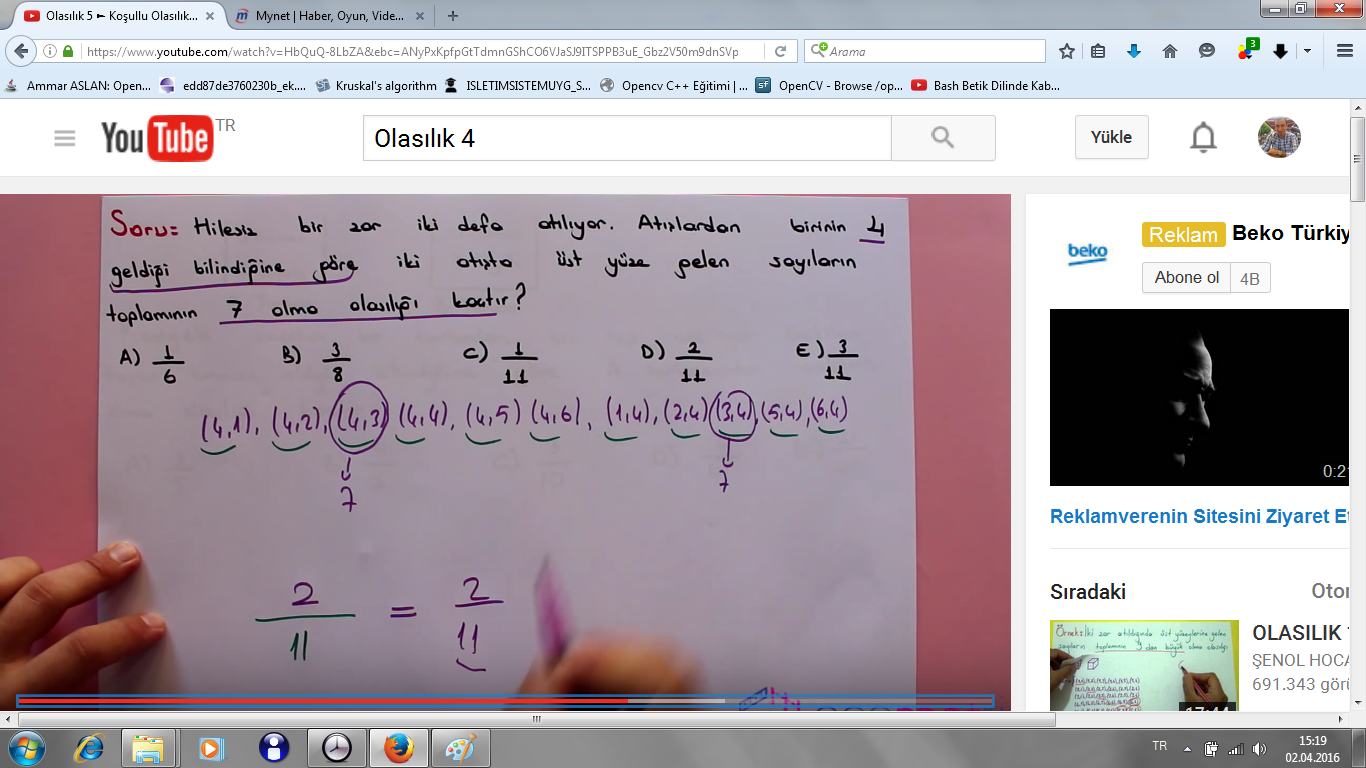 Olasılık 5 ► Koşullu Olasılık...
Mynet | Haber, Oyun, Vide...
https://www.youtube.com/watch?v=HbQuQ-8LbZA&ebc=ANyPxKpfpGtTdmnGShCO6VJaSJ9ITSPPB3uE_Gbz2V50m9dnSVp
Arama
3
Ammar ASLAN: Open...
edd87de3760230b_ek....
Kruskal's algorithm
ISLETIMSISTEMUYG_S...
Opencv C++ Eğitimi | ...
OpenCV - Browse /op...
Bash Betik Dilinde Kab...
YouTube TR
Olasılık 4
Yükle
Soru= Hilesiz bir zar iki defa atılıyor. Atışlardan birinin 4
geldiği bilindiğine göre iki atışta üst yüze gelen sayıların
toplamının 7 olma olasılığı kaçtır?
A) 1/6 B) 3/8 C) 1/11 D) 2/11 E) 3/11
(4,1), (4,2), (4,3) (4,4), (4,5) (4,6), (1,4), (2,4) (3,4), (5,4), (6,4)
7 7
2/11 = 2/11
beko
Reklam Beko Türkiy
Abone ol 4B
0:21
Reklamverenin Sitesini Ziyaret Et
Sıradaki Oto
OLASILIK
ŞENOL HOCA
691.343 görü
17:44
TR
15:19
02.04.2016